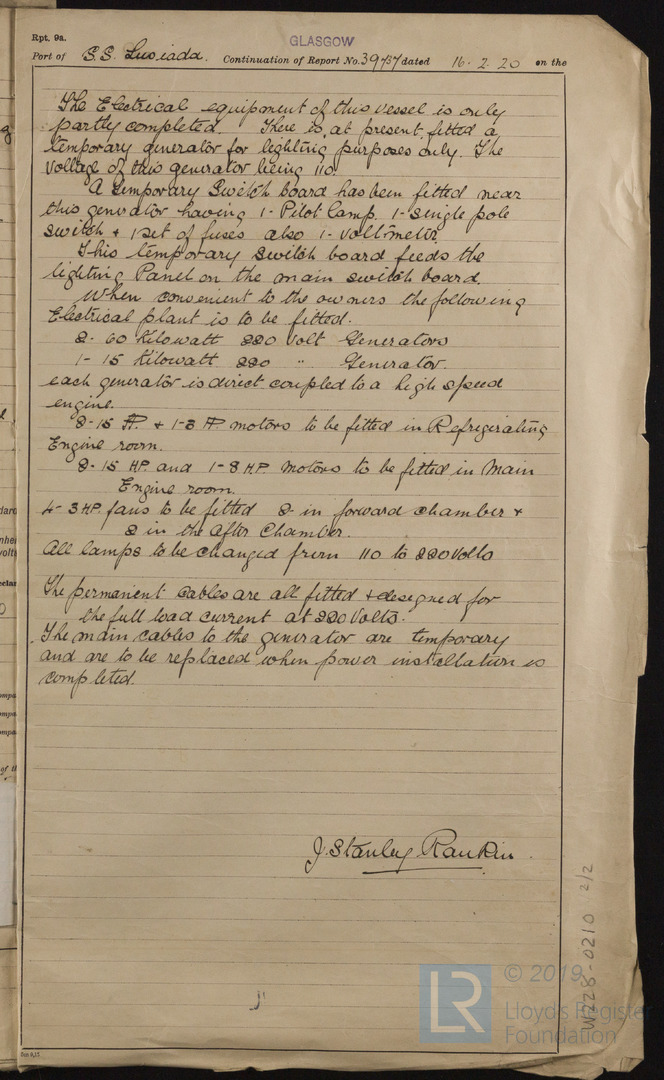 Rpt. 9a.
GLASGOW
Port of S.S. Lusiada. Continuation of Report No. 39757 dated 16. 2. 20 on the
The Electrical equipment of this vessel is only
partly completed. There is, at present, fitted a
temporary generator for lighting purposes only. The
voltage of this generator being 110.
A temporary Switch board has been fitted near
this generator having 1- Pilot lamp, 1- single pole
switch + 1 set of fuses also 1- voltmeter.
This temporary switch board feeds the
lighting Panel on the main switch board.
When convenient to the owners the following
Electrical plant is to be fitted.
2- 60 Kilowatt 220 volt Generators
1- 15 Kilowatt 220 " Generator.
each generator is direct coupled to a high speed
engine.
2-15 HP. + 1-8 HP. motors to be fitted in Refrigerating
Engine room.
2-15 HP. and 1-8 HP. motors to be fitted in Main
Engine room.
4- 3 HP. fans to be fitted 2- in forward chamber +
2 in the After Chamber.
All lamps to be changed from 110 to 220 Volts
The permanent cables are all fitted + designed for
the full load current at 220 Volts.
The main cables to the generator are temporary
and are to be replaced when power installation is
completed.
J. Stanley Rankin
W228-0210 2/2
LR
© 2019
Lloyd's Register
Foundation